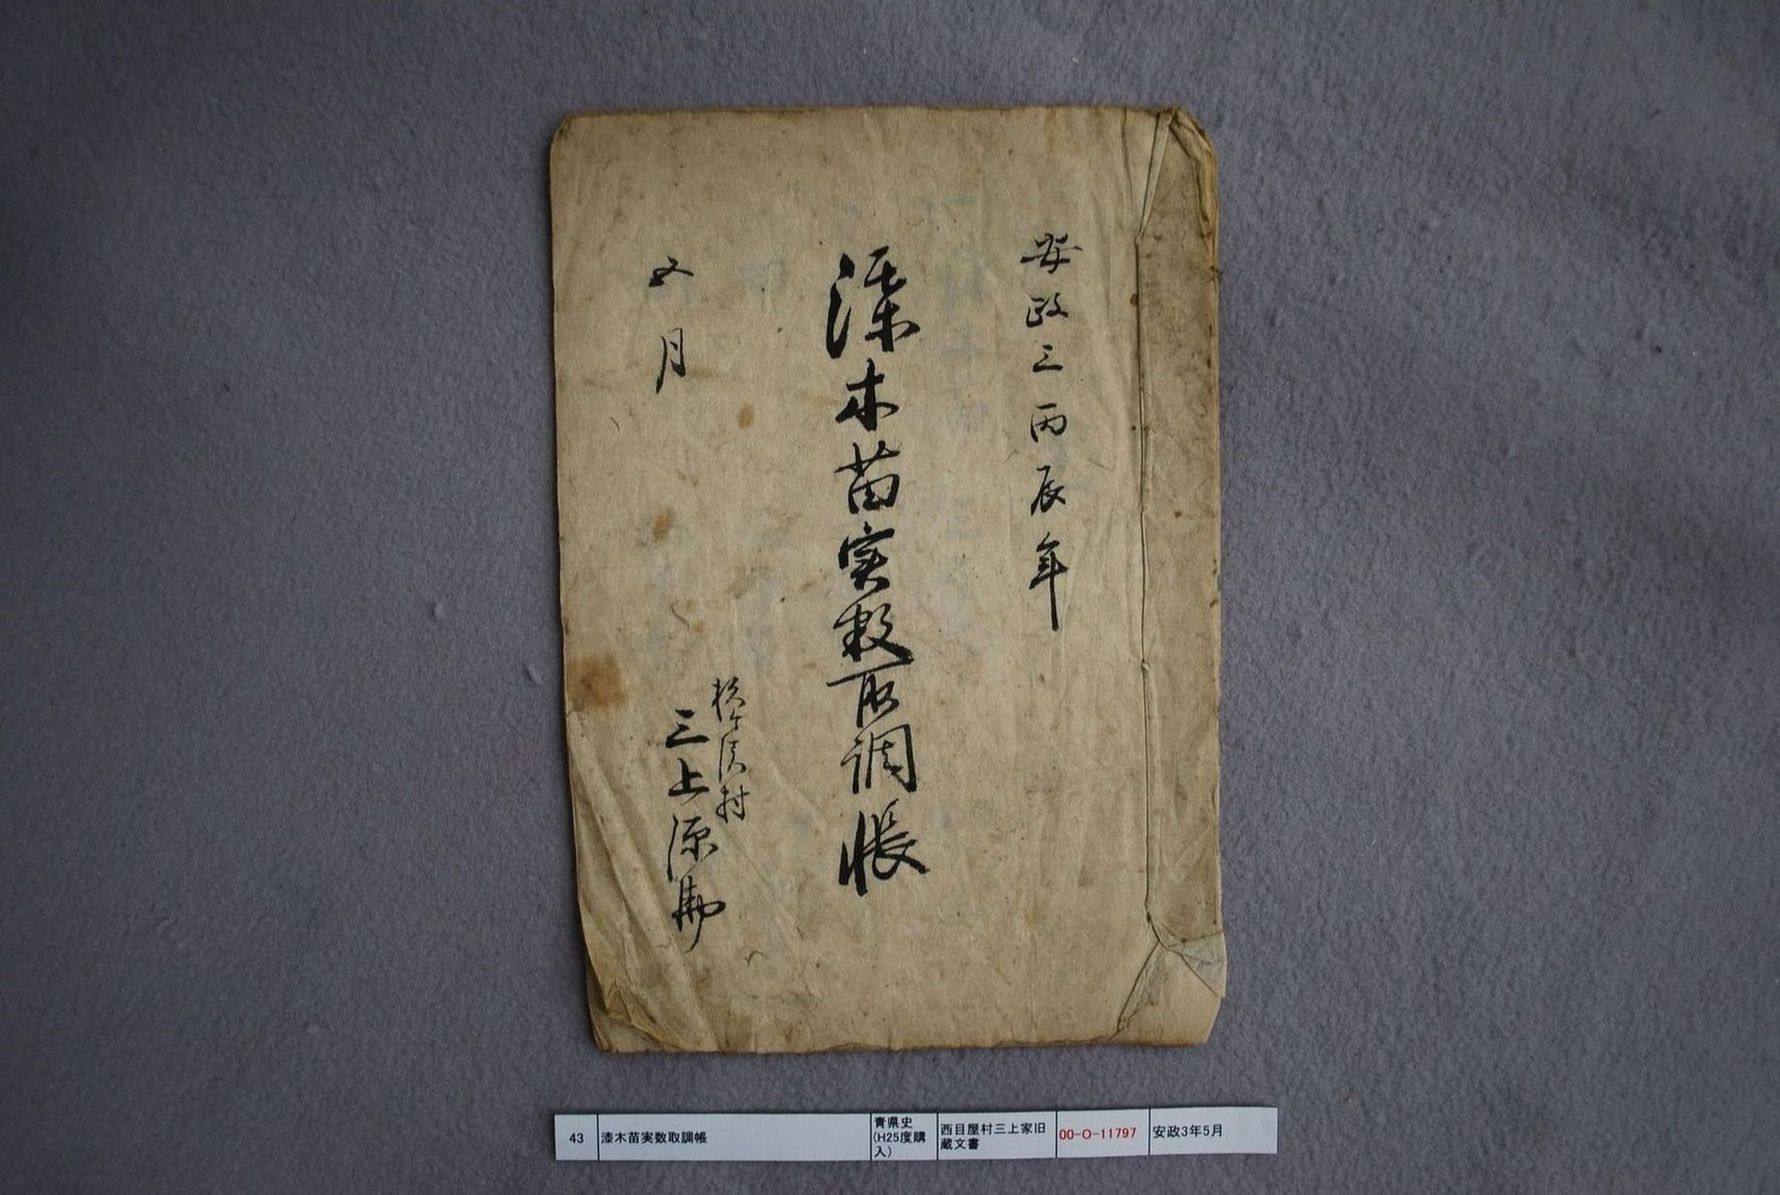 安政三丙辰年
漆木苗実数取調帳
五月
村
三上源
43
漆木苗実数取調帳
青県史
(H25度購
入)
西目屋村三上家旧
蔵文書
00-O-11797
安政3年5月